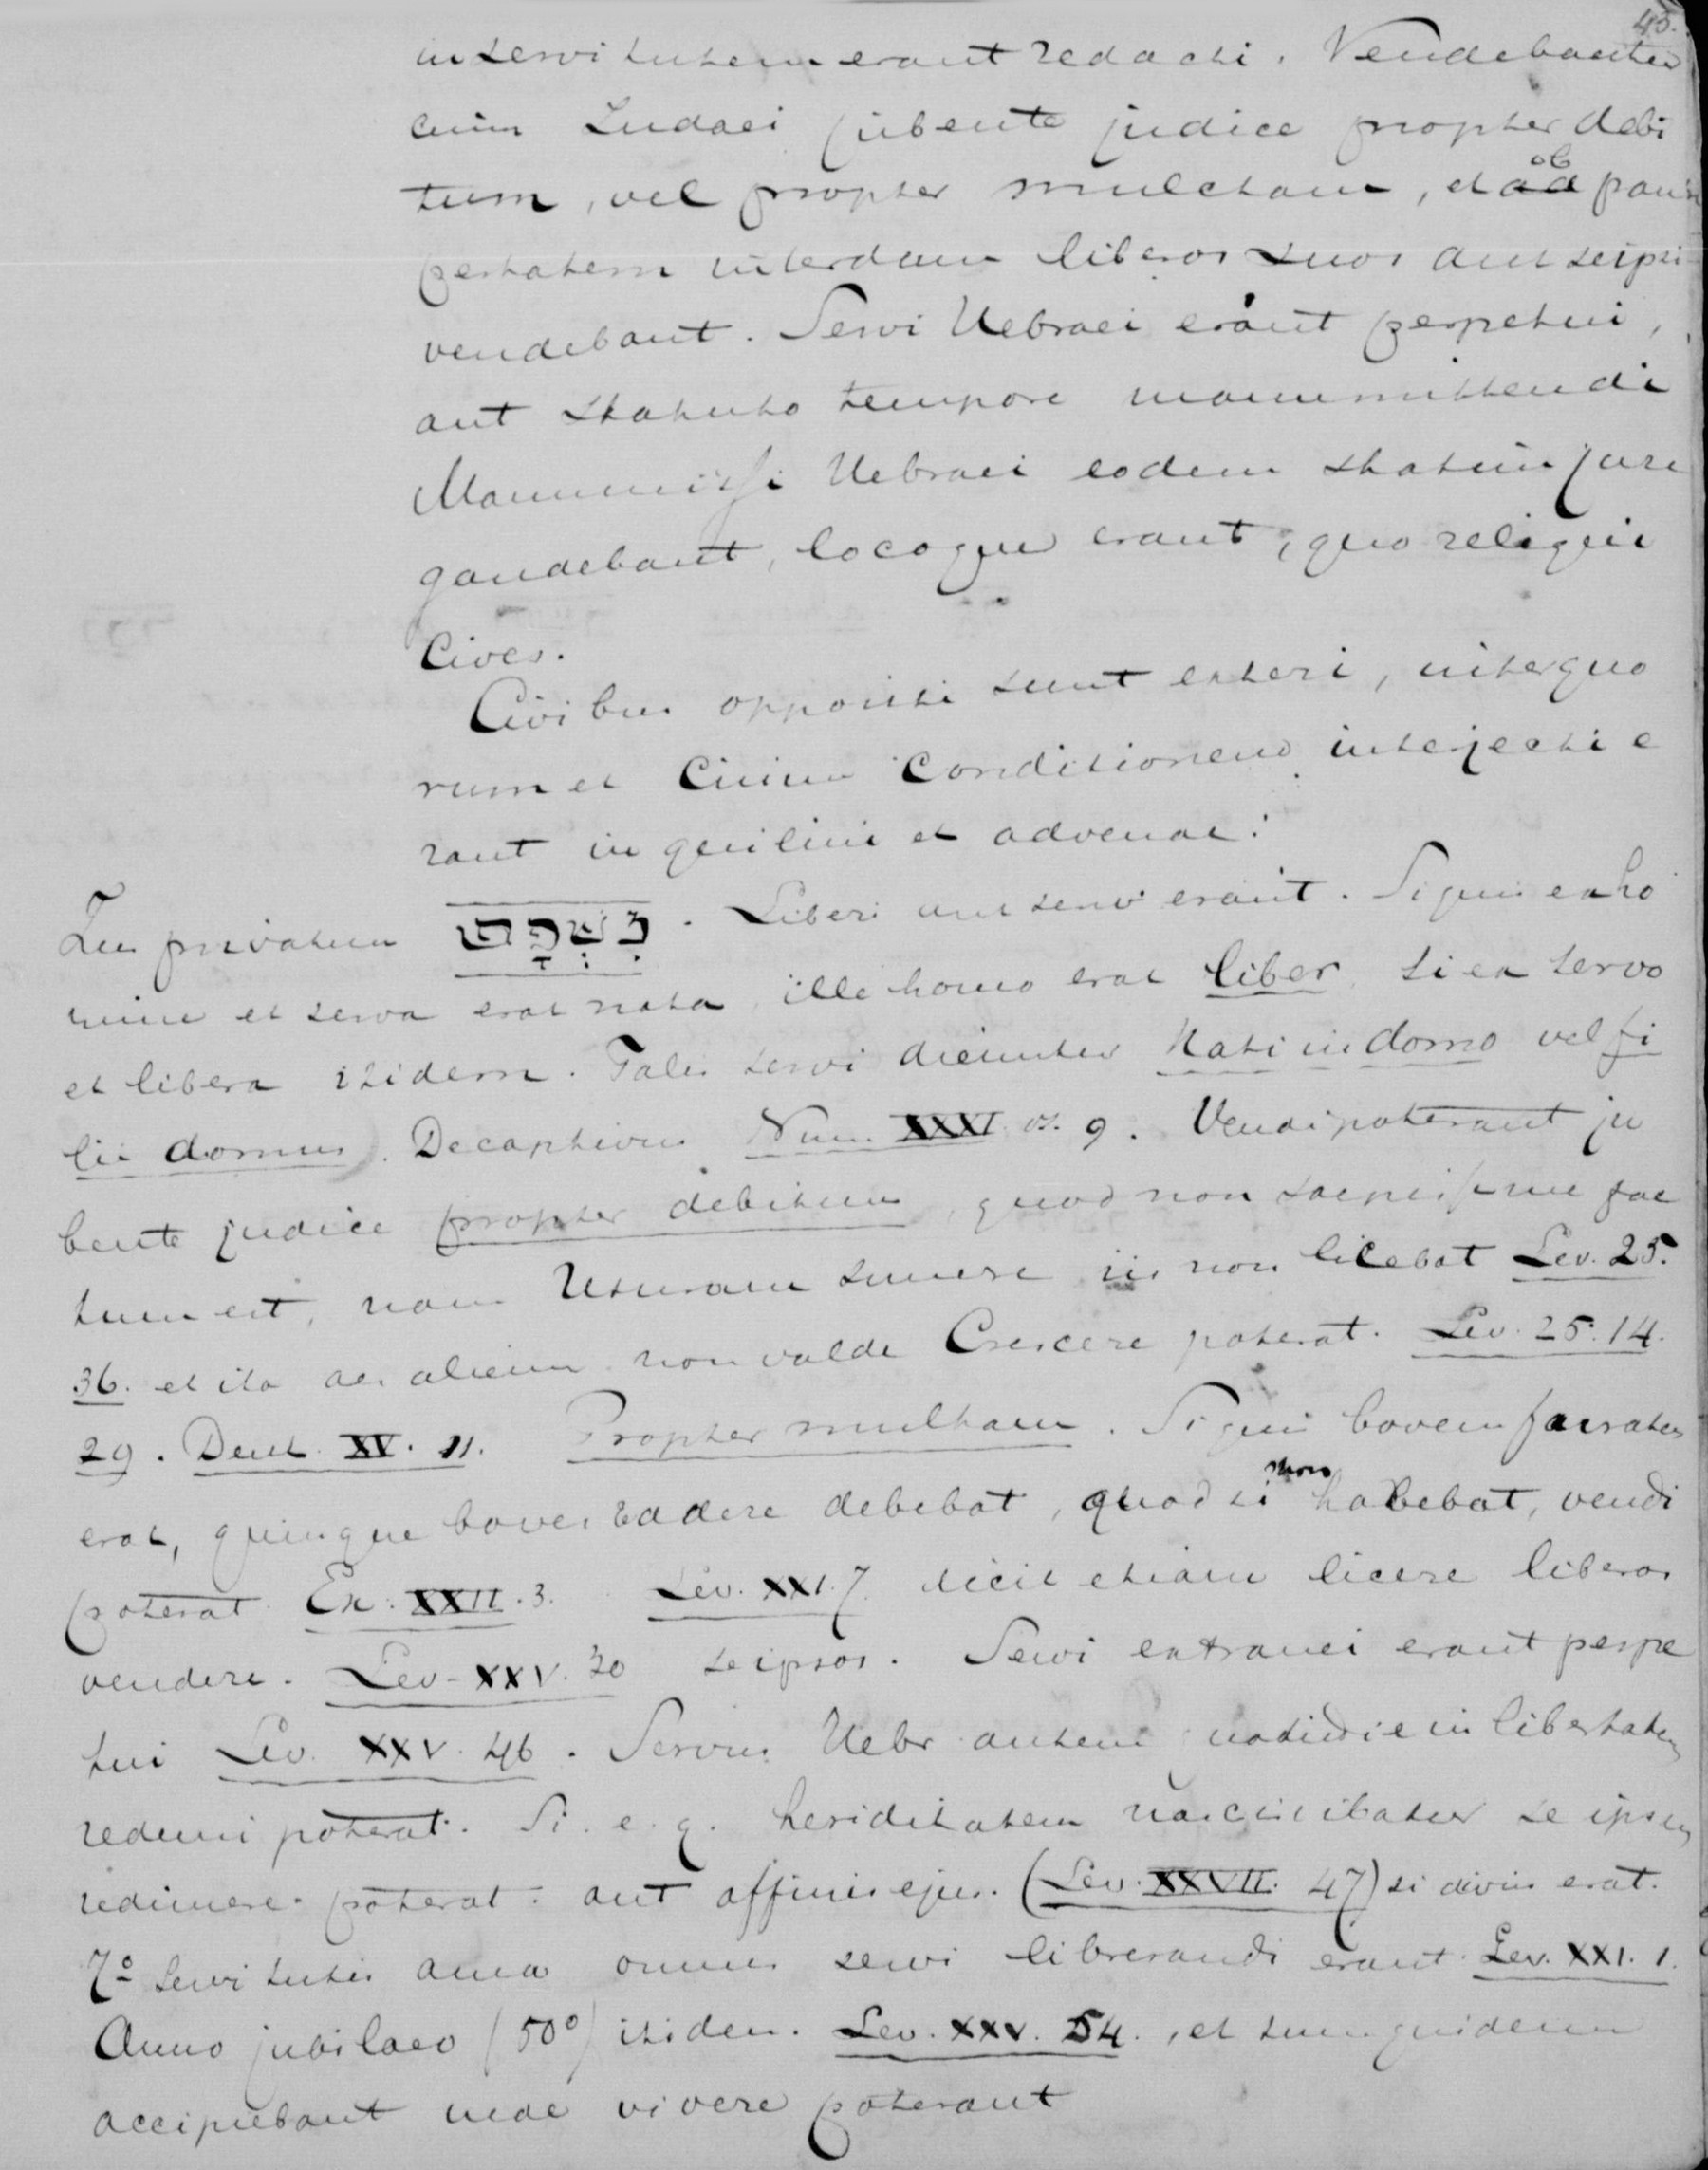 45.
in servitutem erant redacti. Vendebantur
enim Iudaei jubente judice propter debi
tum, vel propter mulctam, et ad ob pau
pertatem interdum liberos suos aut seipsi
vendebant. Servi Hebraei erant perpetui,
aut statuto tempore manumittendi
Manumissi Hebraei eodem statim jure
gaudebant, locoque erant, quo reliqui
Cives.
Civibus oppositi sunt exteri, inter quo
rum et Civium Conditionem interjecti e
rant inquilini et advenae.
Ius privatum מִשְׁפָּט. Liberi aut servi erant. Si quis ex ho
mine et serva erat nata, ille homo erat liber, si ex servo
et libera itidem. Tales servi dicuntur Nati in domo vel fi
lii domus. De captivis Num. XXXI vs. 9. Vendi poterant ju
bente judice propter debitum, quod non saepissime fac
tum est, nam Usuram sumere iis non licebat Lev. 25.
36. et ita aes alienum non valde Crescere poterat. Lev. 25. 14.
29. Deut. XV. 11. Propter multam. Si quis bovem furatus
erat, quinque boves reddere debebat, quod si non habebat, vendi
poterat Ex. XXII. 3. Lev. XXI. 7. dicit etiam licere liberos
vendere. Lev. XXV. 30 seipsos. Servi extranei erant perpe
tui Lev. XXV. 46. Servus Hebr. autem in libertatem
redimi poterat. Si e. g. heriditatem nanciscibatur se ipsum
redimere poterat. aut affinis ejus. (Lev. XXVII. 47) si divis erat.
7º servitutis anno omnes servi librerandi erant Lev. XXI. 1.
Anno jubilaeo (50º) itidem. Lev. XXV. 54., et tum quidem
accipiebant unde vivere poterant